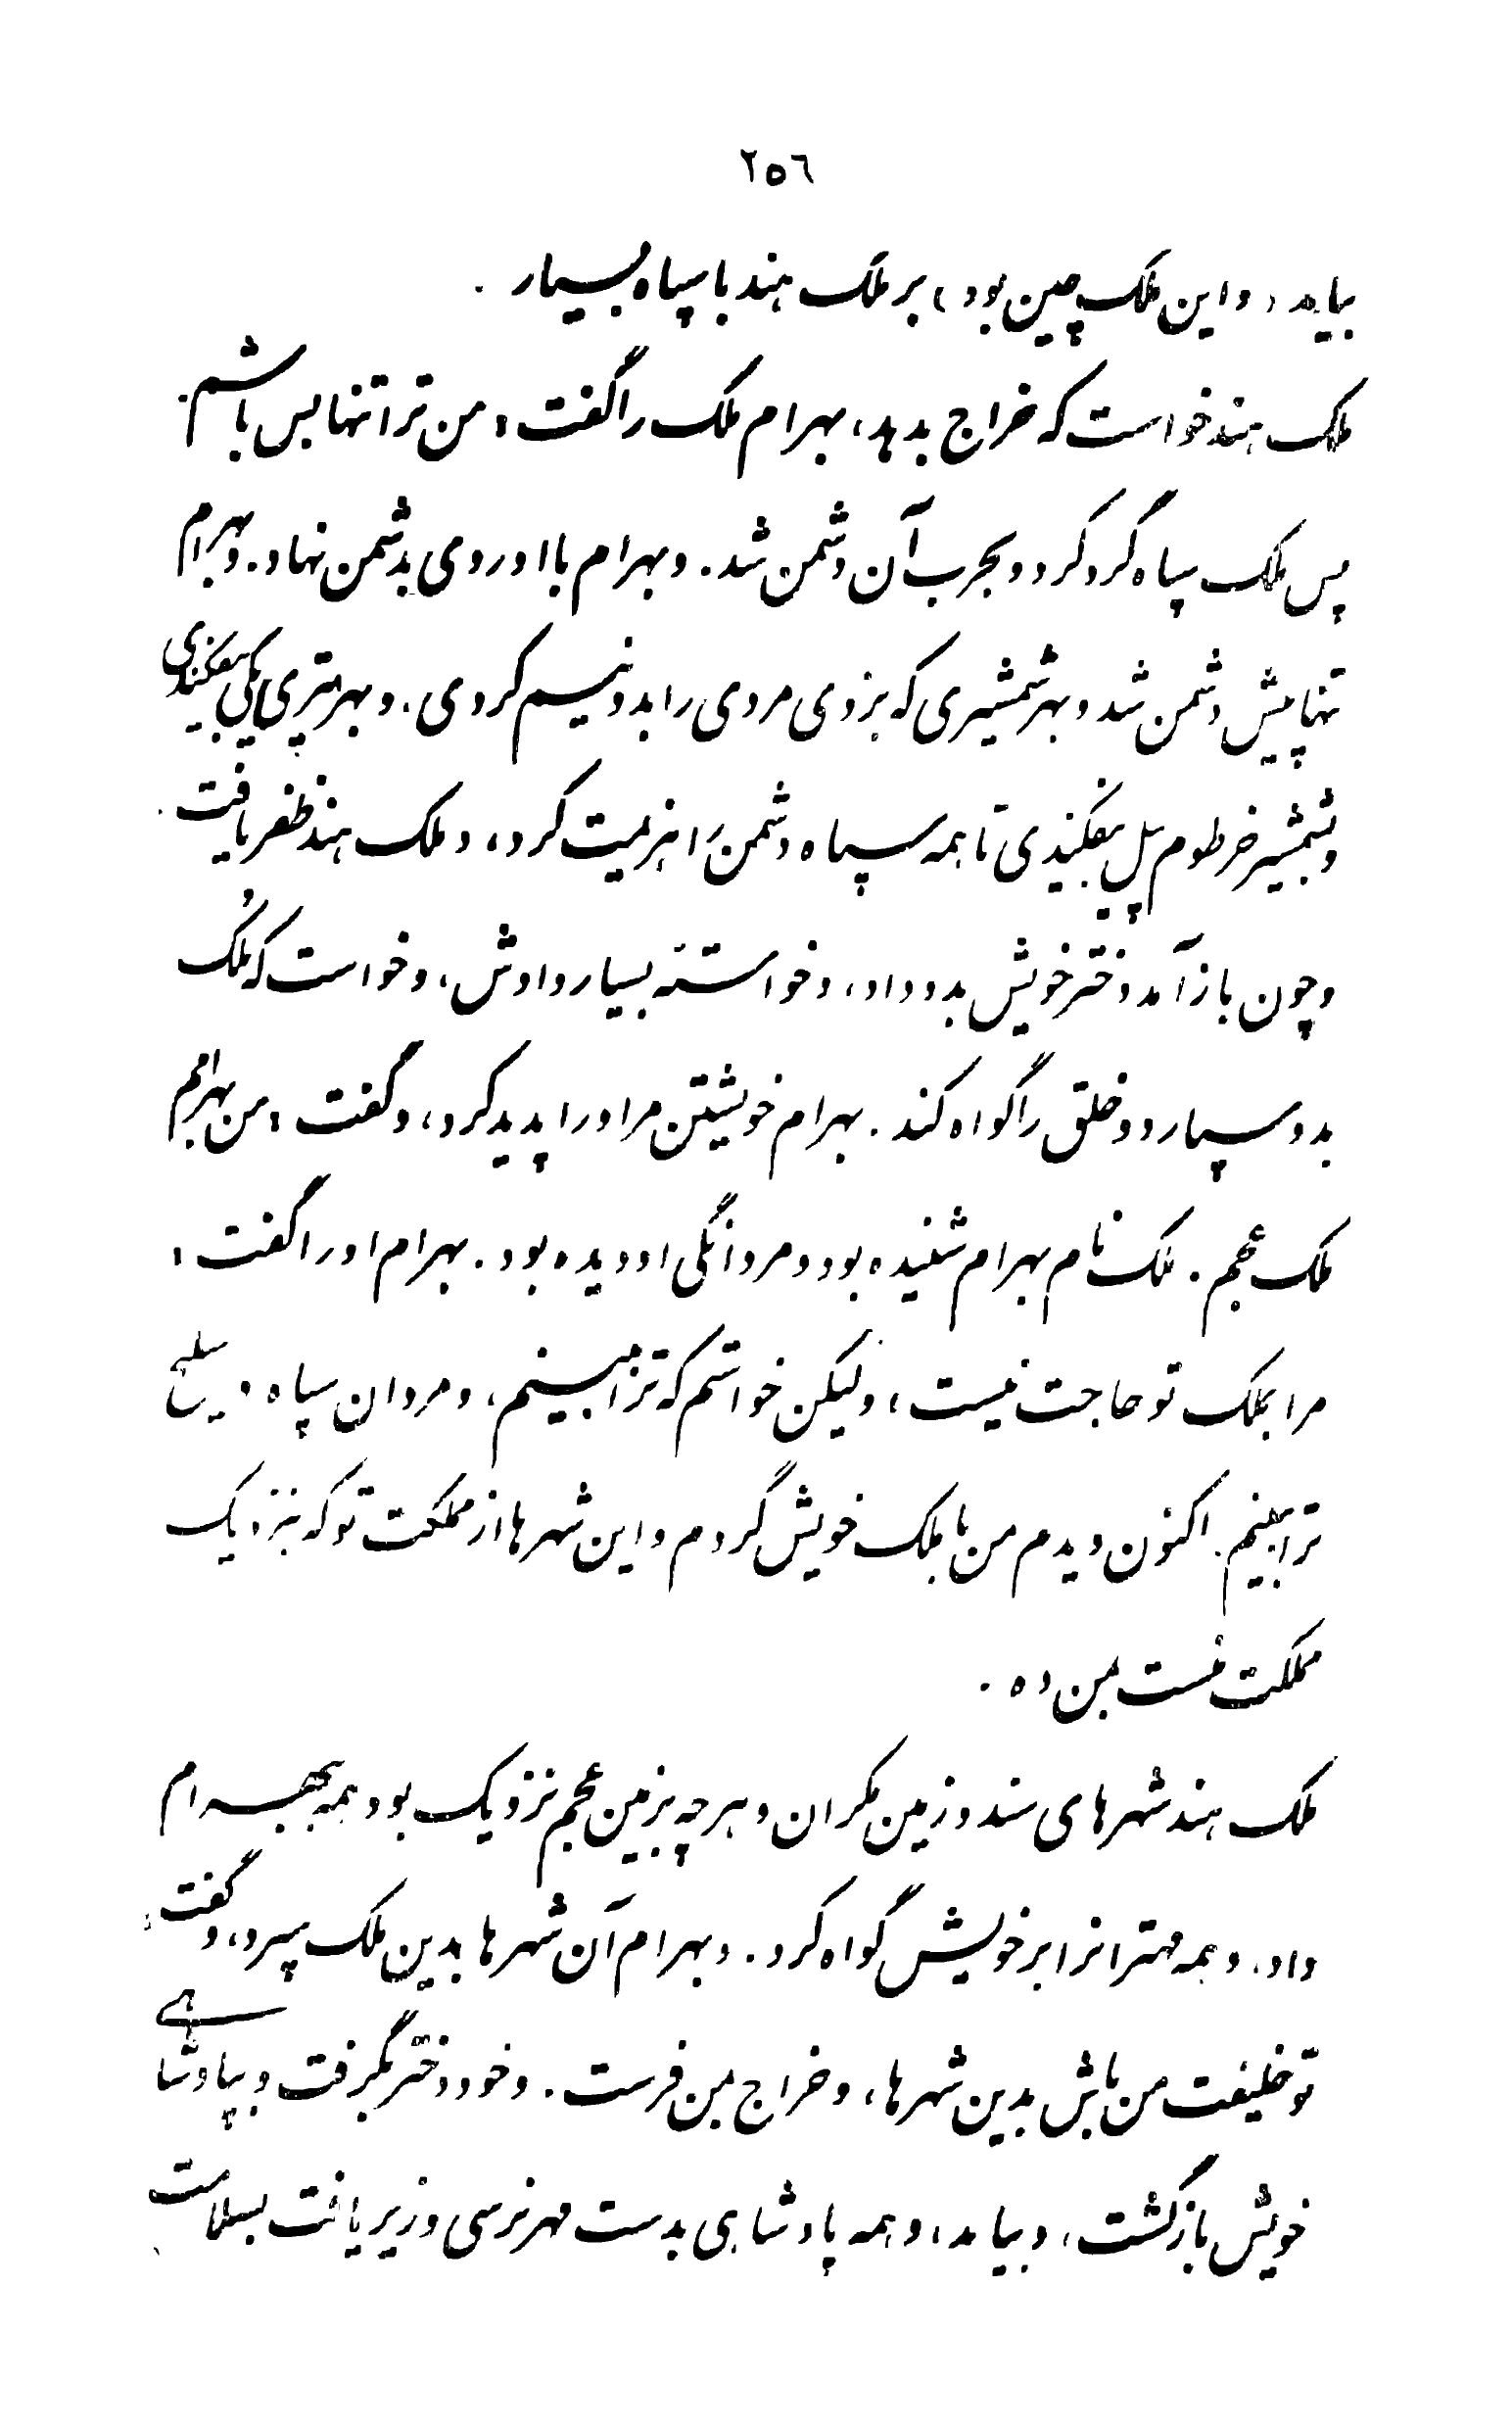 ٢٥٦
بیامد (و این ملک چین بود) بر ملک هند با سپاه بسیار .
ملک هند خواست که خراج بدهد، بهرام ملک را گفت : من ترا تنها بس باشم .
پس ملک سپاه گرد کرد و بحرب آن دشمن شد . و بهرام با او روی بدشمن نهاد . و بهرام
تنها پیش دشمن شد و بهر شمشیری که بزدی مردی را بدو نیم کردی . و بهر تیری یکی بیفکندی
و بشمشیر خرطوم پیل بیفکندی تا همه سپاه دشمن را هزیمت کرد، و ملک هند ظفر یافت .
و چون باز آمد دختر خویش بدو داد، و خواسته بسیار دادش، و خواست که مُلک
بدو سپارد و خلق را گواه کند . بهرام خویشتن مر او را پدید کرد، و گفت : من بهرامم
ملک عجم . ملک نام بهرام شنیده بود و مردانگی او دیده بود . بهرام او را گفت :
مرا بملک تو حاجت نیست، ولیکن خواستم که ترا ببینم، و مردان سپاه و سلیح
ترا ببینم . اکنون دیدم من با ملک خویش گردم و این شهرها از مملکت تو که بنزدیک
مملکت منست بمن ده .
ملک هند شهرهای سند و زمین مکران و هرچه بزمین عجم نزدیک بود همه ببهرام
داد، و همه مهترانرا بر خویش گواه کرد . و بهرام آن شهرها بدین ملک سپرد، و گفت :
تو خلیفت من باش بدین شهرها، و خراج بمن فرست . و خود دختر بگرفت و بپادشاهی
خویش بازگشت، و بیامد، و همه پادشاهی بدست مهرنرسی وزیر یافت بسلامت .